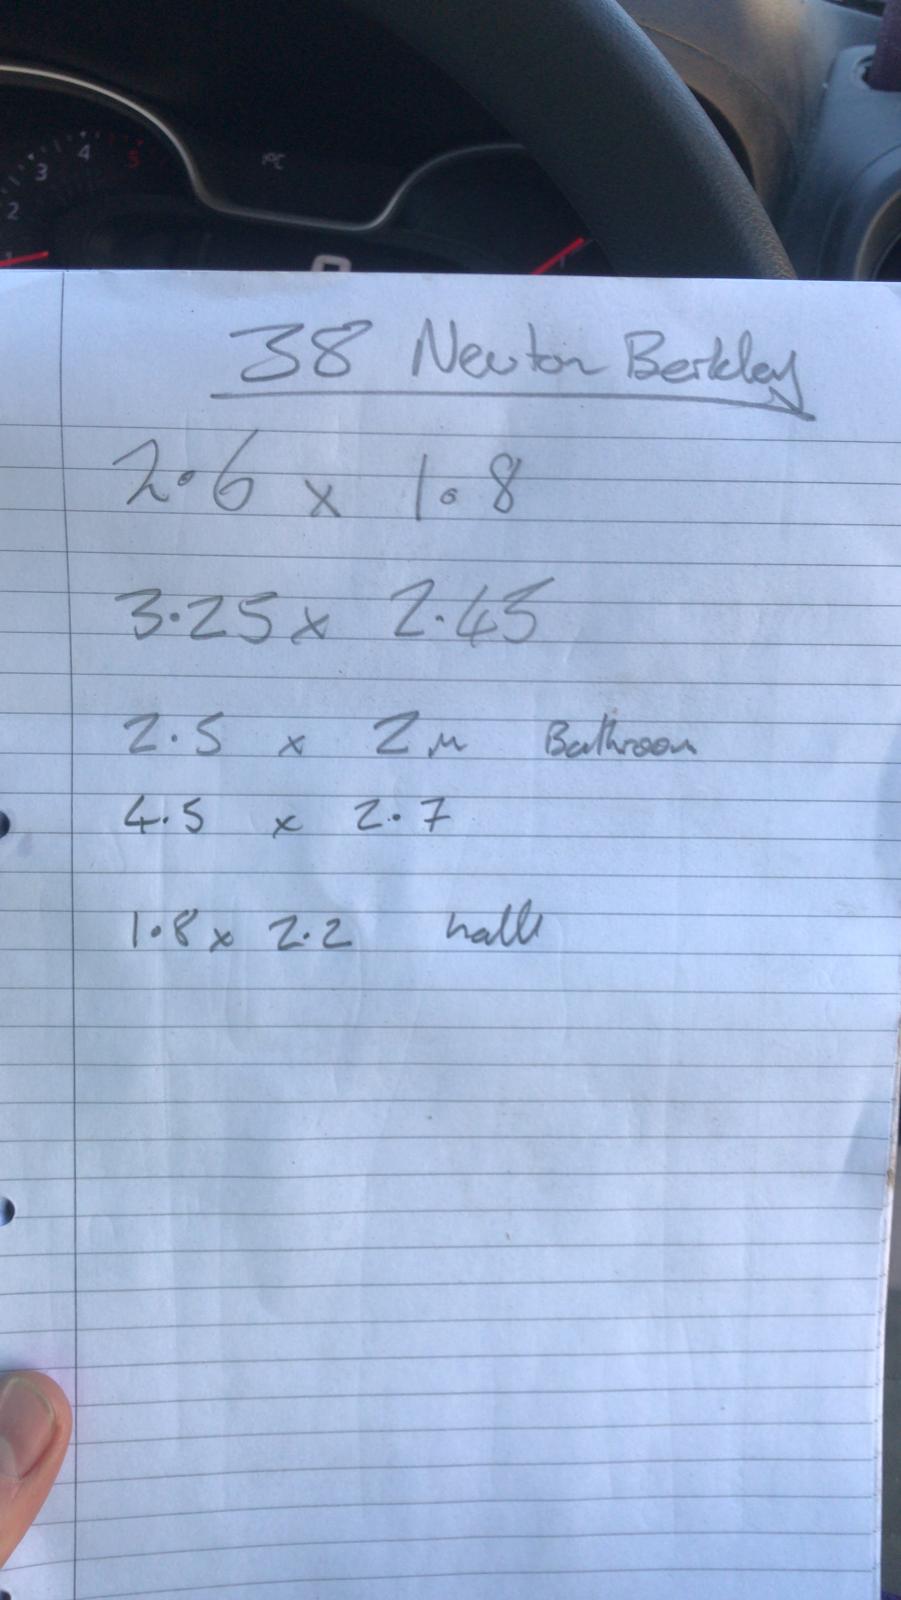 2
3
4
5
°C
38 Newton Berkley
2.6 x 1.8
3.25 x 2.45
2.5 x 2m Bathroom
4.5 x 2.7
1.8 x 2.2 hall